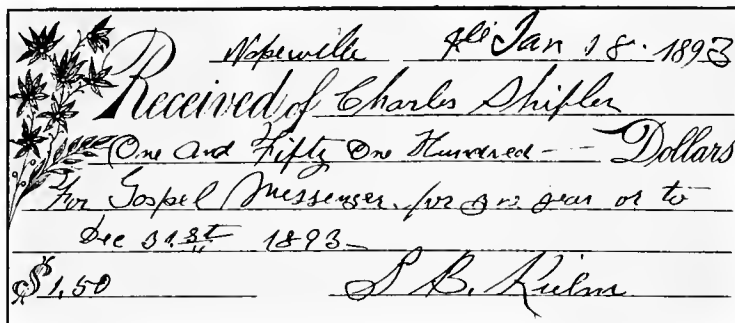 Naperville Ills Jan 18. 1893
Received of Charles Shifler
One and Fifty One Hundred - - - Dollars
For Gospel Messenger. for one year or to
Dec 31.st 1893_
$1.50 S. B. Kuhn